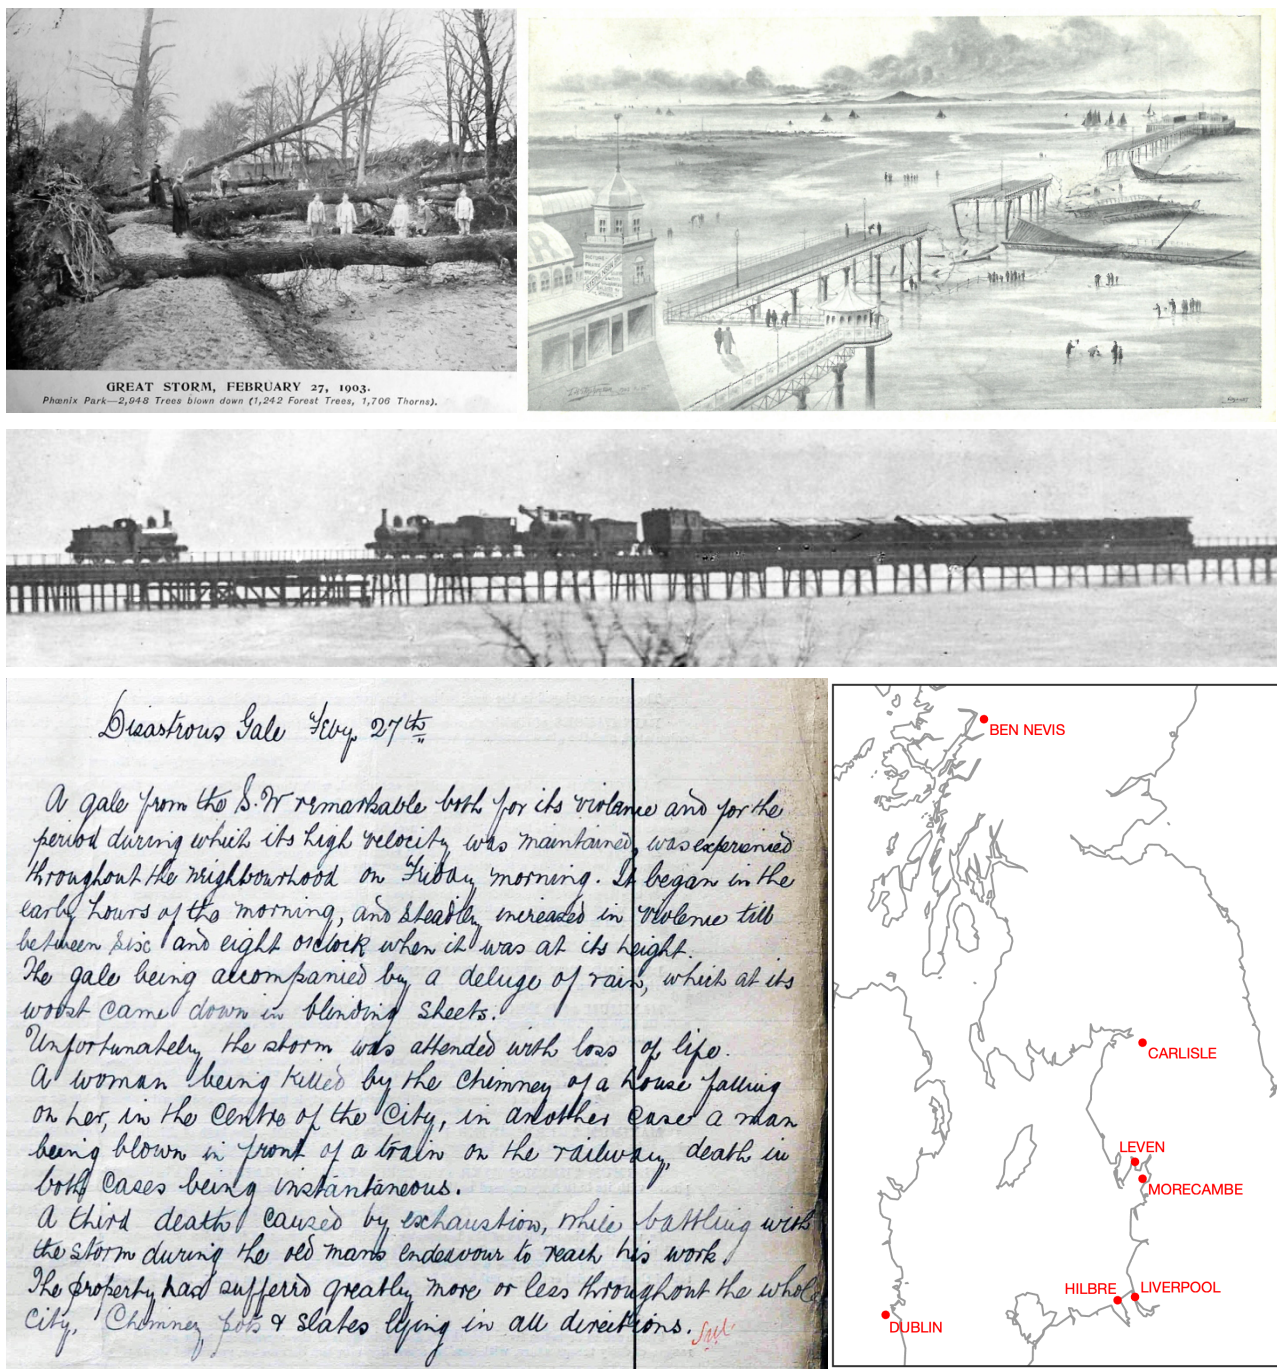 GREAT STORM, FEBRUARY 27, 1903.
Phœnix Park—2,948 Trees blown down (1,242 Forest Trees, 1,706 Thorns).
Disastrous Gale Feby. 27th
A gale from the S.W remarkable both for its violence and for the
period during which its high velocity was maintained, was experienced
throughout the neighbourhood on Friday morning. It began in the
early hours of the morning, and steadily increased in violence till
between six and eight oclock when it was at its height.
The gale being accompanied by a deluge of rain, which at its
worst came down in blinding sheets.
Unfortunately the storm was attended with loss of life.
A woman being killed by the chimney of a house falling
on her, in the centre of the city, in another case a man
being blown in front of a train on the railway, death in
both cases being instantaneous.
A third death caused by exhaustion, while battling with
the storm during the old mans endeavour to reach his work.
The property has sufferd greatly more or less throughout the whole
city. Chimney pots & slates lying in all directions.
BEN NEVIS
CARLISLE
LEVEN
MORECAMBE
HILBRE
LIVERPOOL
DUBLIN